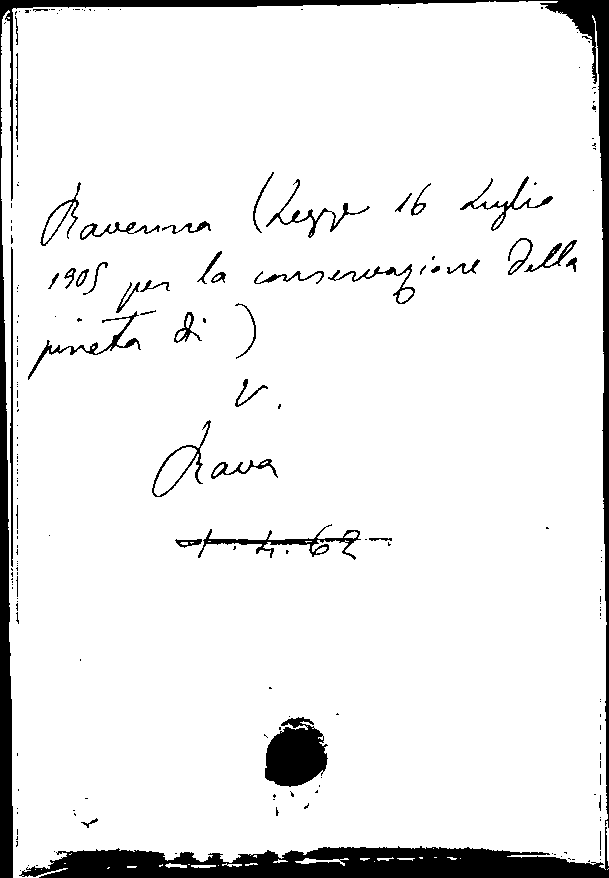 Ravenna (Legge 16 Luglio
1905 per la conservazione della
pineta di)
V.
Rava
1.4.62